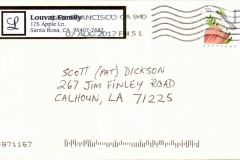 L
Louvar Family
175 Apple Ln.
Santa Rosa, CA 95407-7682
SAN FRANCISCO CA 940
07 AUG 2017 PM 5 L
SCOTT (PAT) DICKSON
267 JIM FINLEY ROAD
CALHOUN, LA 71225
-871167